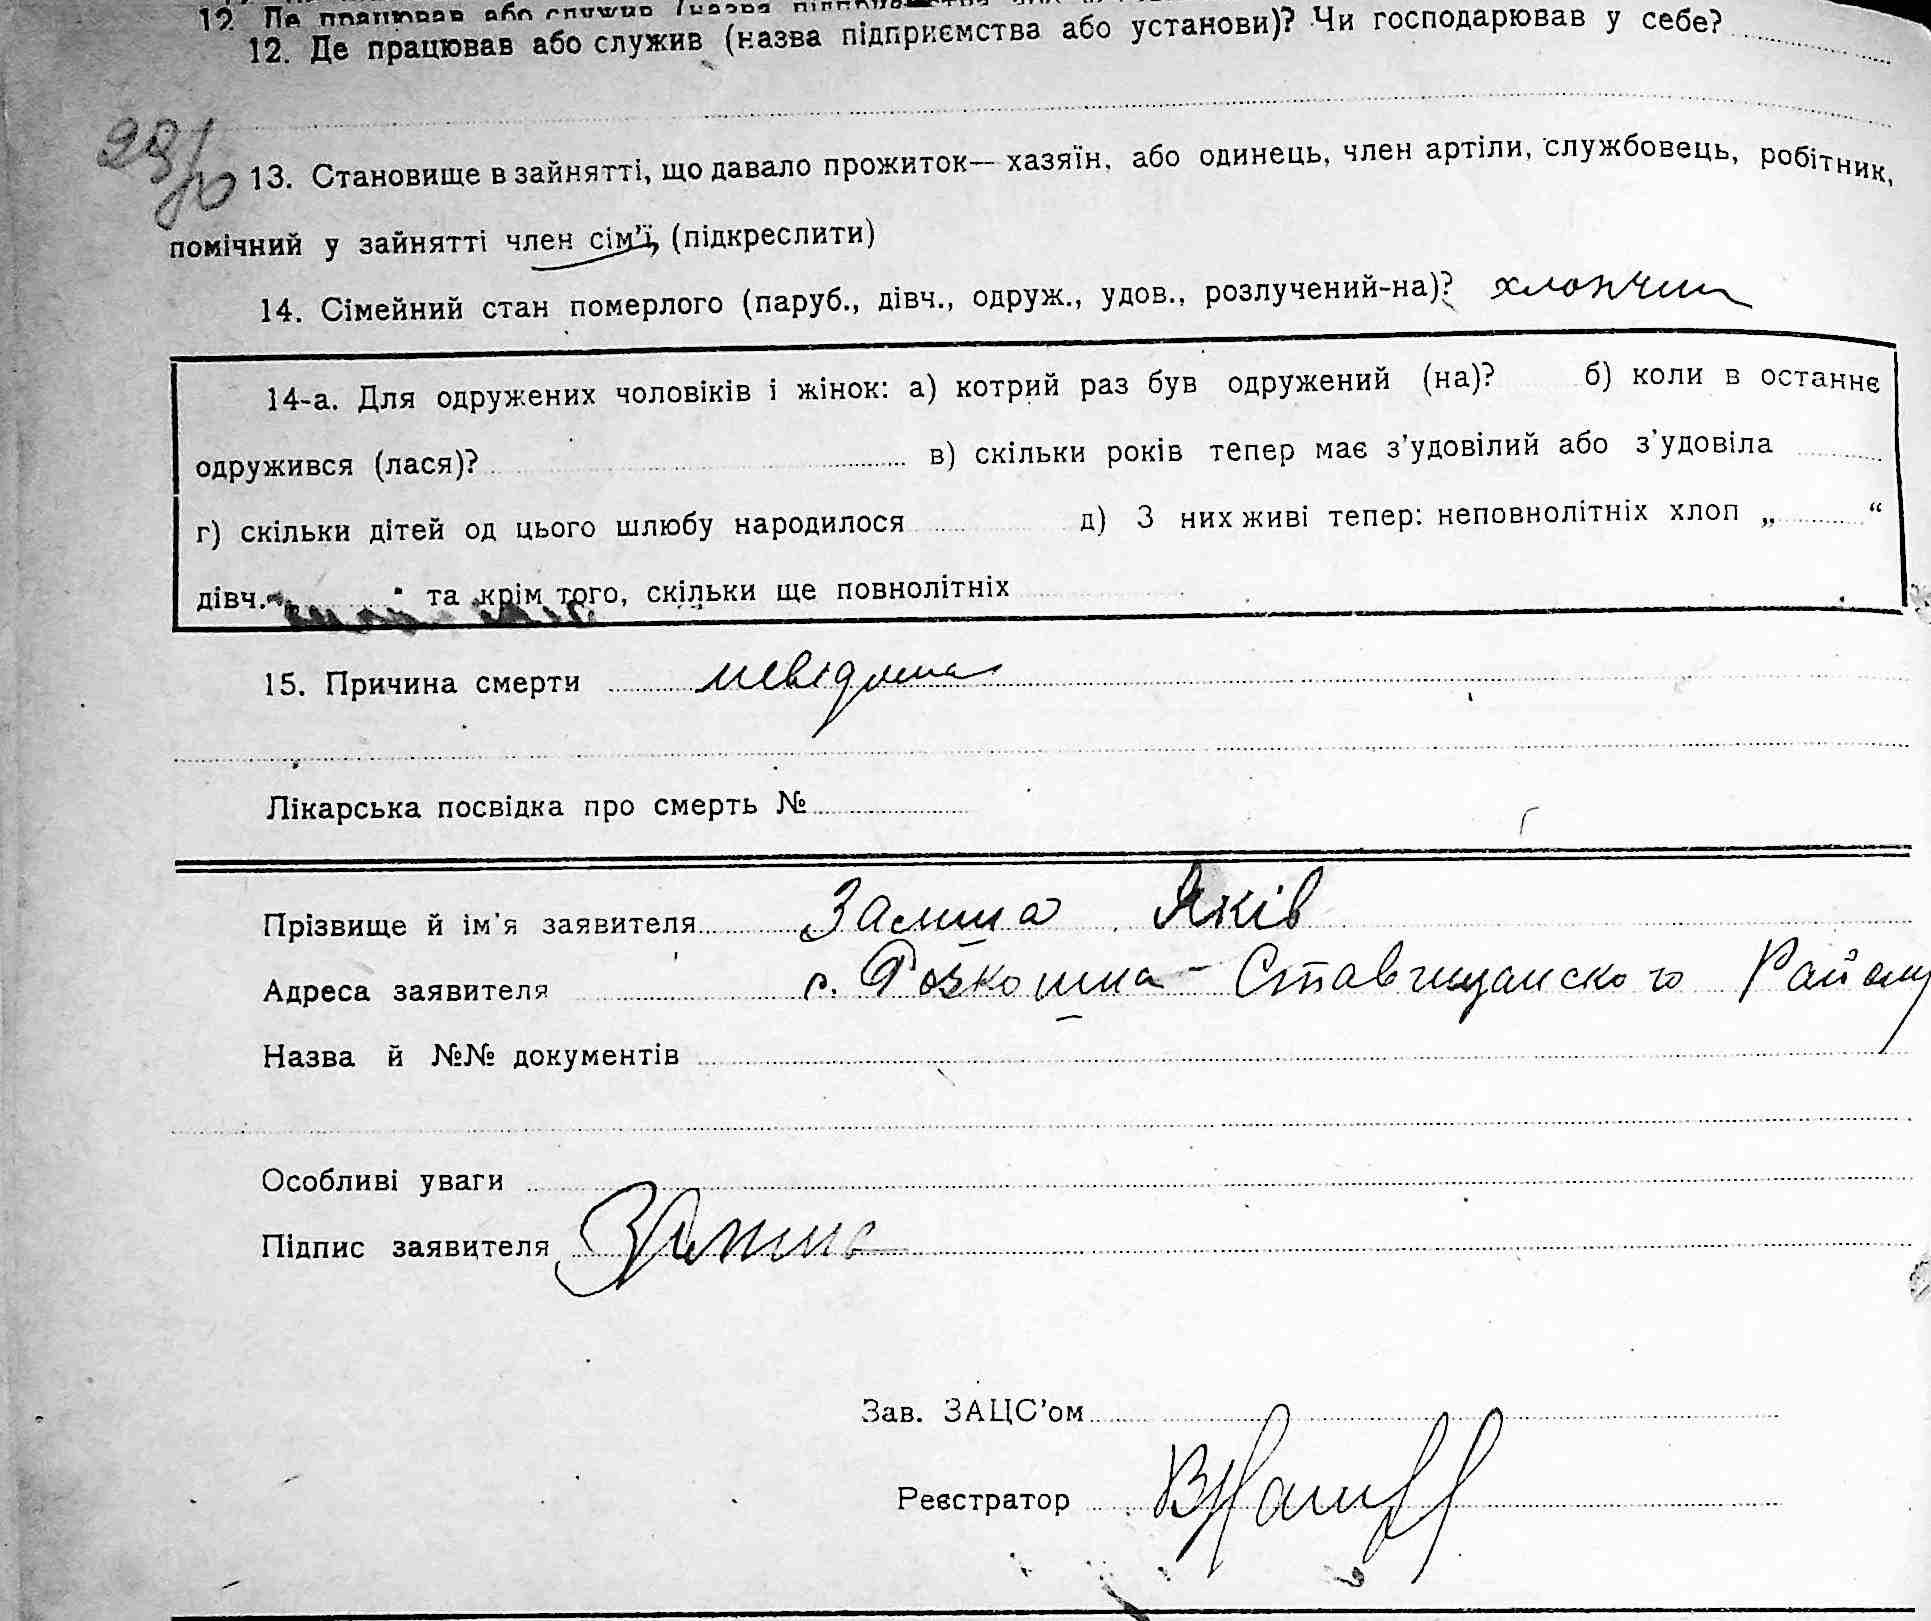 12. Де працював або служив (назва
12. Де працював або служив (назва підприємства або установи)? Чи господарював у себе?
13. Становище в зайнятті, що давало прожиток— хазяїн, або одинець, член артіли, службовець, робітник,
помічний у зайнятті член сім'ї, (підкреслити)
14. Сімейний стан померлого (паруб., дівч., одруж., удов., розлучений-на)? хлопчик
14-а. Для одружених чоловіків і жінок: а) котрий раз був одружений (на)? б) коли в останнє
одружився (лася)? в) скільки років тепер має з'удовілий або з'удовіла
г) скільки дітей од цього шлюбу народилося д) З них живі тепер: неповнолітніх хлоп „ “
дівч. „ “ та крім того, скільки ще повнолітніх
15. Причина смерти невідома
Лікарська посвідка про смерть №
Прізвище й ім'я заявителя Яків
Адреса заявителя с. Розкошна - Ставищанского Району
Назва й №№ документів
Особливі уваги
Підпис заявителя
Зав. ЗАЦС'ом
Реєстратор